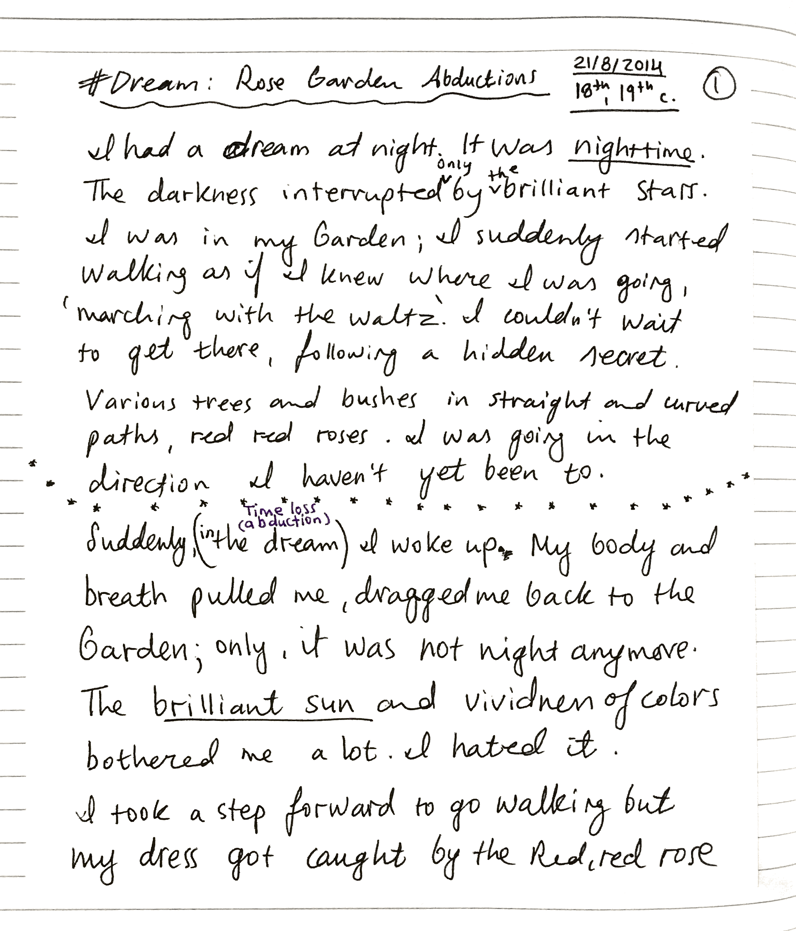 #Dream: Rose Garden Abductions
21/8/2014
18th, 19th c.
1
I had a dream at night. It was nighttime.
The darkness interrupted only by the brilliant stars.
I was in my Garden; I suddenly started
walking as if I knew where I was going,
'marching with the waltz'. I couldn't wait
to get there, following a hidden secret.
Various trees and bushes in straight and curved
paths, red red roses. I was going in the
direction I haven't yet been to.
Time loss
(abduction)
Suddenly, (in the dream) I woke up. My body and
breath pulled me, dragged me back to the
Garden; only, it was not night anymore.
The brilliant sun and vividness of colors
bothered me a lot. I hated it.
I took a step forward to go walking but
my dress got caught by the Red, red rose